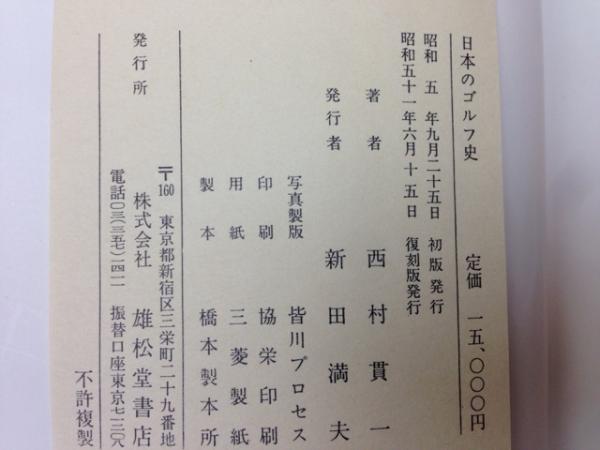 日本のゴルフ史 定価 一五、〇〇〇円
昭和 五 年九月二十五日 初版発行
昭和五十一年六月十五日 復刻版発行
著者 西村貫一
発行者 新田満夫
写真製版 皆川プロセス
印刷 協栄印刷
用紙 三菱製紙
製本 橋本製本所
〒160 東京都新宿区三栄町二十九番地
発行所 株式会社 雄松堂書店
電話〇三(三五七)一四一一 振替口座東京七一三〇八
不許複製